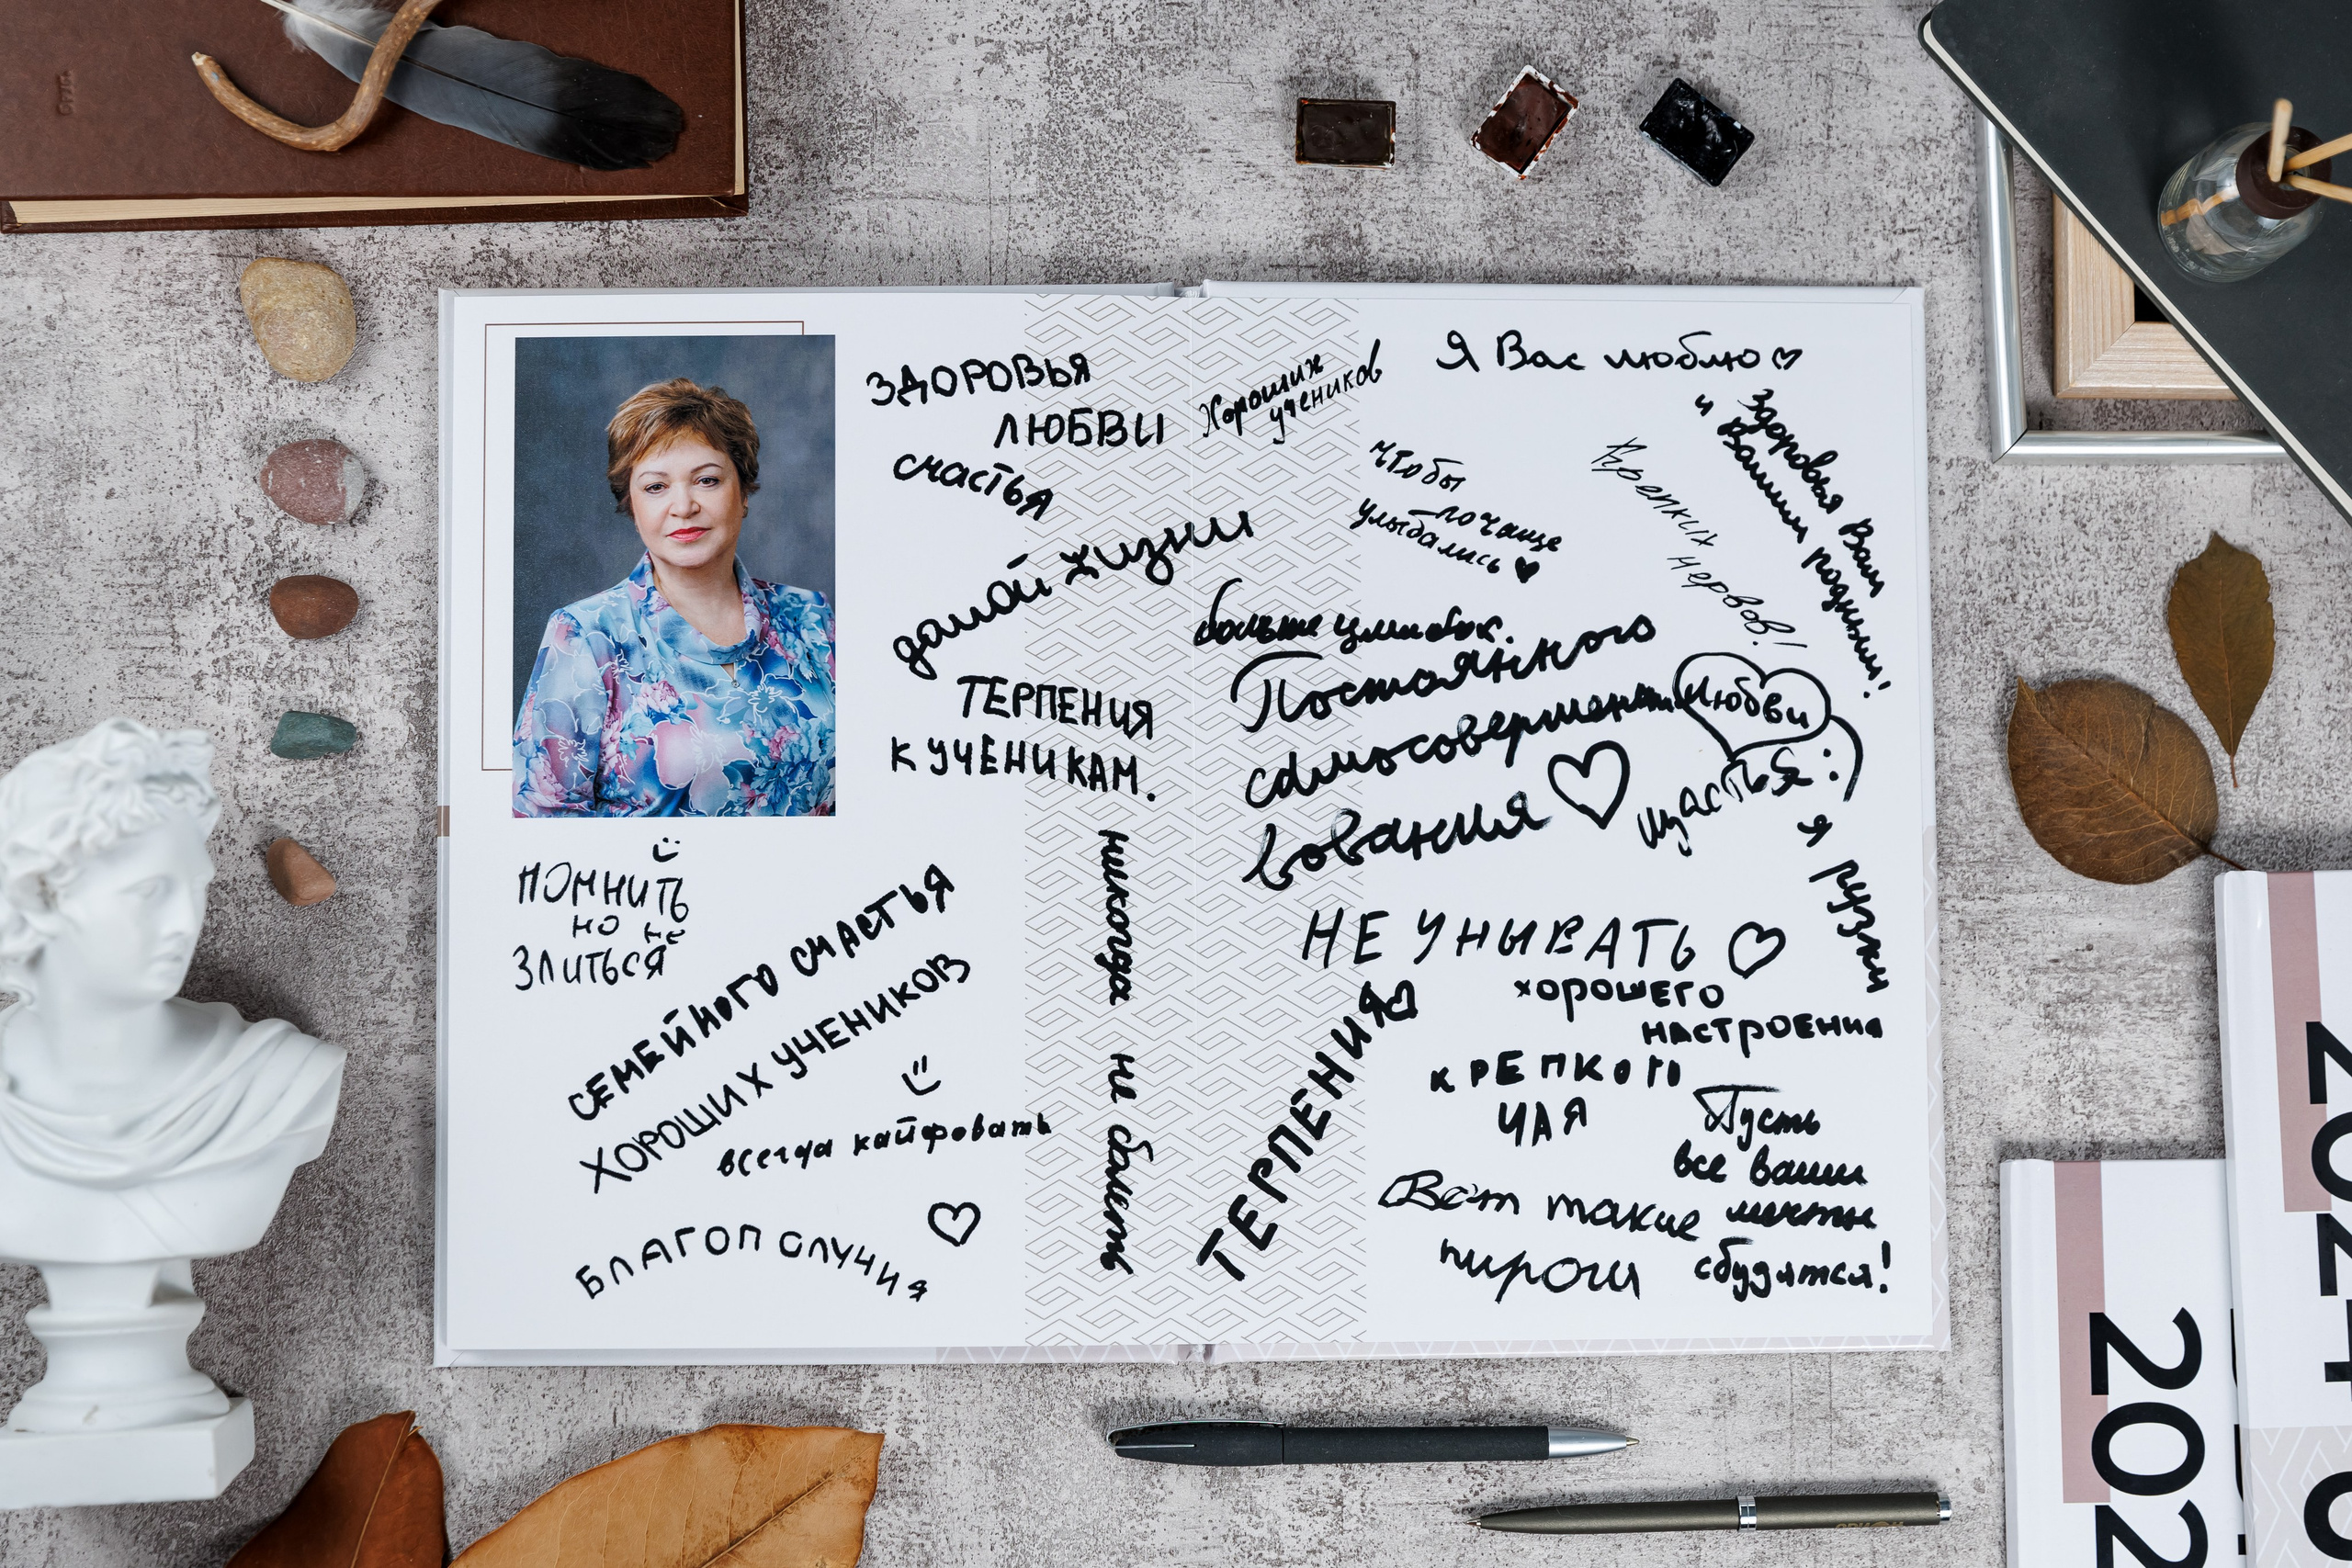 ЗДОРОВЬЯ
ЛЮБВИ
счастья
долгой жизни
ТЕРПЕНИЯ
К УЧЕНИКАМ.
ПОМНИТЬ
но не
ЗЛИТЬСЯ
СЕМЕЙНОГО СЧАСТЬЯ
ХОРОШИХ УЧЕНИКОВ
всегда кайфовать
БЛАГОПОЛУЧИЯ
никогда не болеть
Хороших
учеников
Я Вас люблю
здоровья Вам
и Вашим родным!
чтобы
почаще
улыбались
Крепких нервов!
больше улыбок.
Постоянного
самосовершенст
вования
Любви
щастья :)
Я рузки
НЕ УНЫВАТЬ
хорошего
настроения
ТЕРПЕНИЯ
КРЕПКОГО
ЧАЯ
Пусть
все ваши
мечты
сбудятся!
Вот такие
пироги
2024
202